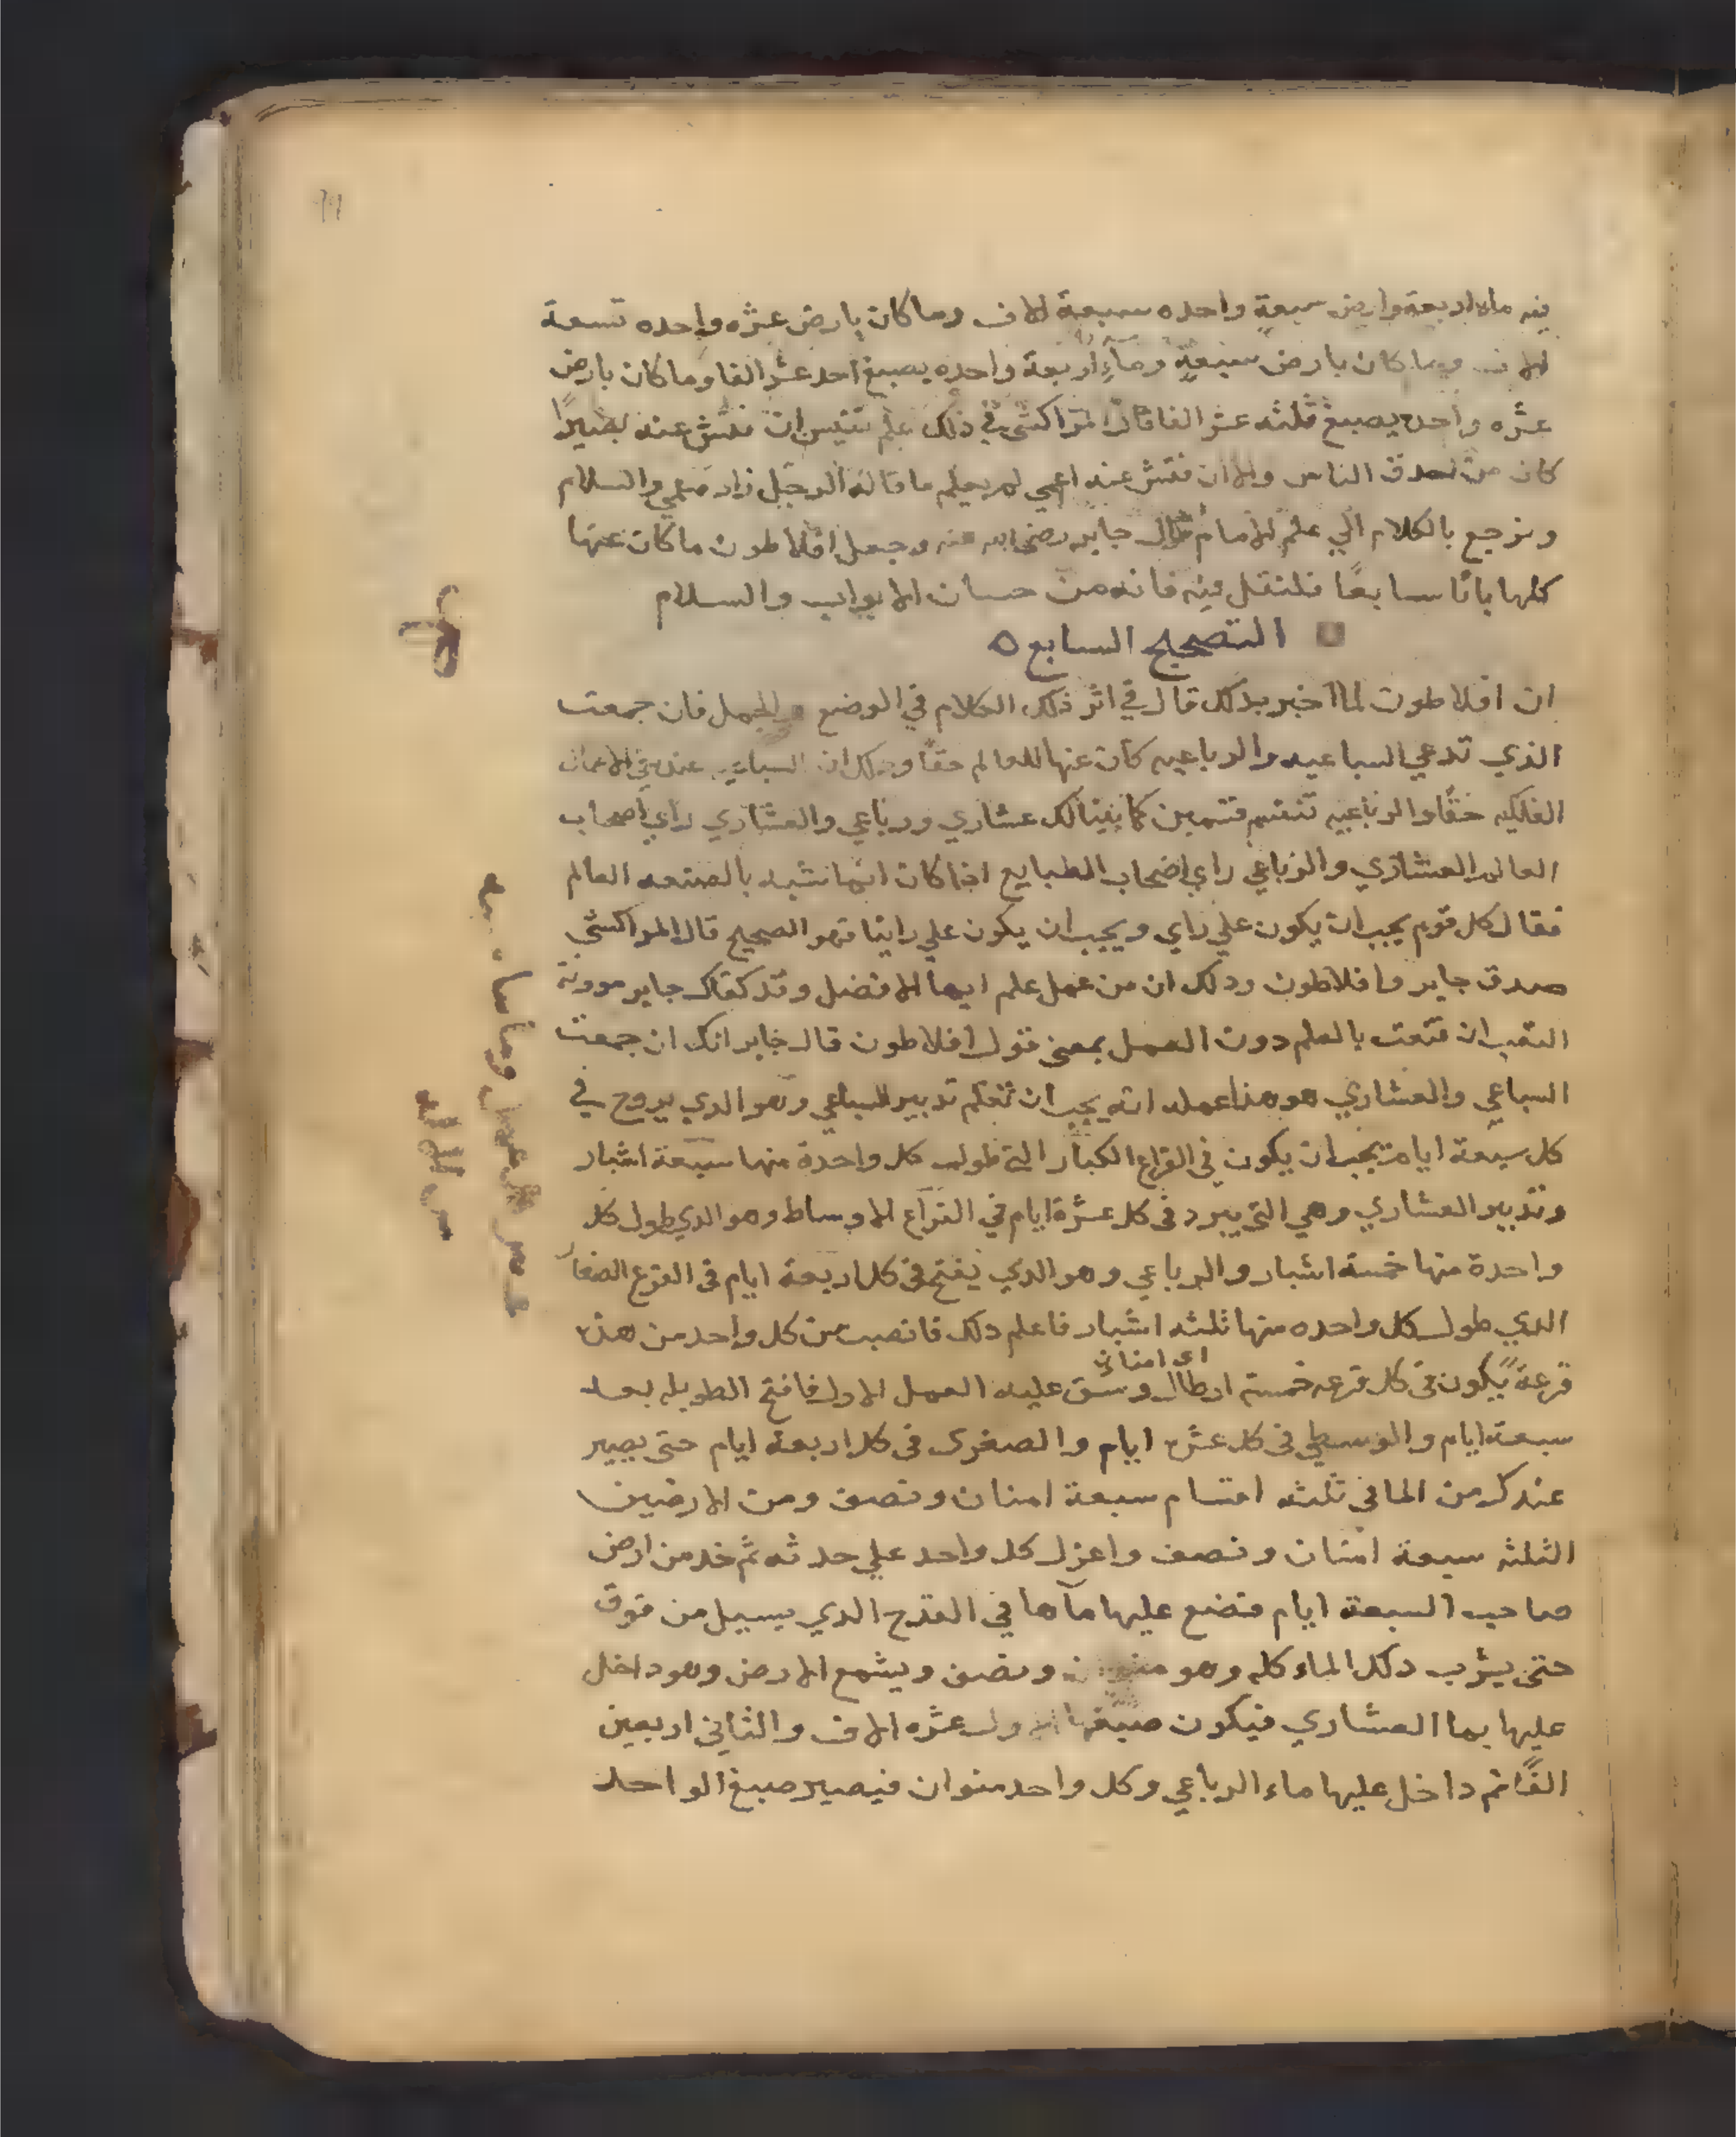 فيه ماء اربعة وارض سبعة واحده سبعة الاف وما كان بارض عشره واحده تسعة
الاف وما كان بارض سبعة وماء اربعة واحده يصبغ احد عشر الفا وما كان بارض
عشره واحد يصبغ ثلثه عشر الفا قال المراكشي في ذلك علم نفيس ان فتش عنه بصيرا
كان من احدق الناس والا ان فتش عنه اعمي لم يعلم ما قاله الرجل زاد عمي والسلام
ونرجع بالكلام الي علم الامام قال جابر رضي الله عنه وجعل افلاطون ما كان عنها
كلها بابا سابعا فلنقل فيه فانه من حسان الابواب والسلام
التصحيح السابع
ان افلاطون لما اخبر بذلك قال في اثر ذلك الكلام في الوضع والجمل فان جمعت
الذي تدعي السباعيه والرباعيه كان عنها العالم حقا وذلك ان السباعي عنده في الاعمال
الفلكيه حقا والرباعيه تنقسم قسمين كما بينا لك عشاري ورباعي والعشاري راي اصحاب
العالم العشاري والرباعي راي اصحاب الطبايع اذا كان انما نشبه بالصنعه العالم
فقال كل قوم يجب ان يكون علي راي ويجب ان يكون علي راينا فهو الصحيح قال المراكشي
صدق جابر وافلاطون وذلك ان من عمل علم ايما الافضل وقد كفاك جابر موونة
التعب ان قنعت بالعلم دون العمل بمعنى قول افلاطون قال جابر انك ان جمعت
السباعي والعشاري هو هذا عمله انه يجب ان تعلم تدبير السباعي وهو الذي يروح في
كل سبعة ايام يجب ان يكون في القراع الكبار التي طول كل واحدة منها سبعة اشبار
وتدبير العشاري وهي التي يبرد في كل عشرة ايام في القراع الاوساط وهو الذي طول كل
واحدة منها خمسة اشبار والرباعي وهو الذي يفتح في كل اربعة ايام في القرع الصغار
الذي طول كل واحده منها ثلثه اشبار فاعلم ذلك فانصب من كل واحد من هذه
اي امنان
قرعة يكون في كل قرعه خمسة ارطال وسق عليه العمل الاول فافتح الطويله بعد
سبعة ايام والوسطي في كل عشره ايام والصغرى في كل اربعة ايام حتى يصير
عندك من الما في ثلثه اقسام سبعة امنان ونصف ومن الارضين
الثلثه سبعة امنان ونصف واعزل كل واحد علي حدته ثم خد من ارض
صاحب السبعة ايام فتضع عليها ماها في القدح الذي يسيل من فوق
حتى يشرب دلك الماء كله وهو ونصف ويشمع الارض وهو داخل
عليها بما العشاري فيكون صبغها الاول عشره الاف والثاني اربعين
الفا ثم داخل عليها ماء الرباعي وكل واحد منوان فيصير صبغ الواحد